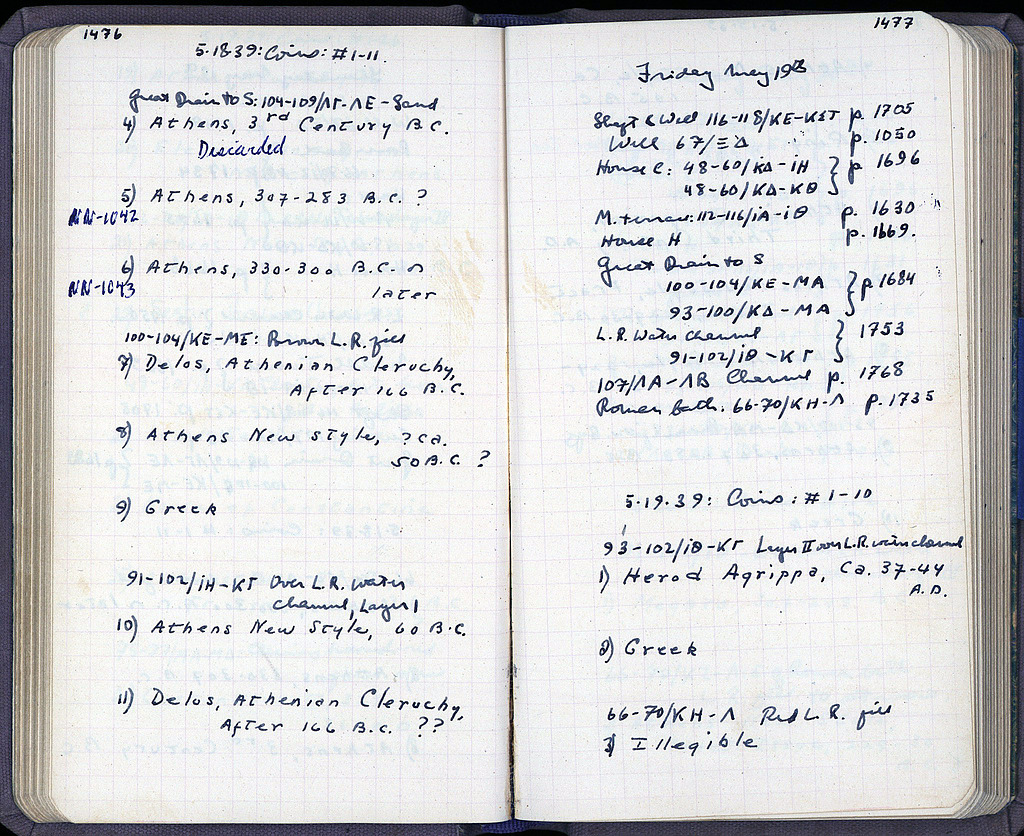 1476
5·18·39: Coins: #1-11.
Great Drain to S: 104-109/ΛΓ-ΛΕ - Sand
4) Athens, 3rd Century B.C.
Discarded
5) Athens, 307-283 B.C. ?
NN-1042
6) Athens, 330-300 B.C. or
NN-1043
later
100-104/ΚΕ-ΜΕ: Brown L.R. fill
7) Delos, Athenian Cleruchy,
After 166 B.C.
8) Athens New Style, ? ca.
50 B.C. ?
9) Greek
91-102/ΙΗ-ΚΓ Over L.R. Water
Channel, Layer I
10) Athens New Style, 60 B.C.
11) Delos, Athenian Cleruchy,
After 166 B.C. ??
1477
Friday May 19th
Shaft & Well 116-118/ΚΕ-ΚΣΤ p. 1705
Well 67/ΞΔ p. 1050
House C: 48-60/ΚΔ-ΙΗ } p. 1696
48-60/ΚΔ-ΚΘ
M. terrace: 112-116/ΙΑ-ΙΘ p. 1630
House H p. 1669.
Great Drain to S
100-104/ΚΕ-ΜΑ } p. 1684
93-100/ΚΔ-ΜΑ
L.R. Water Channel } 1753
91-102/ΙΘ-ΚΓ
107/ΛΑ-ΛΒ Channel p. 1768
Roman bath: 66-70/ΚΗ-Λ p. 1735
5·19·39: Coins: #1-10
93-102/ΙΘ-ΚΓ Layer II over L.R. water channel
1) Herod Agrippa, Ca. 37-44
A.D.
2) Greek
66-70/ΚΗ-Λ Red L.R. fill
3) Illegible